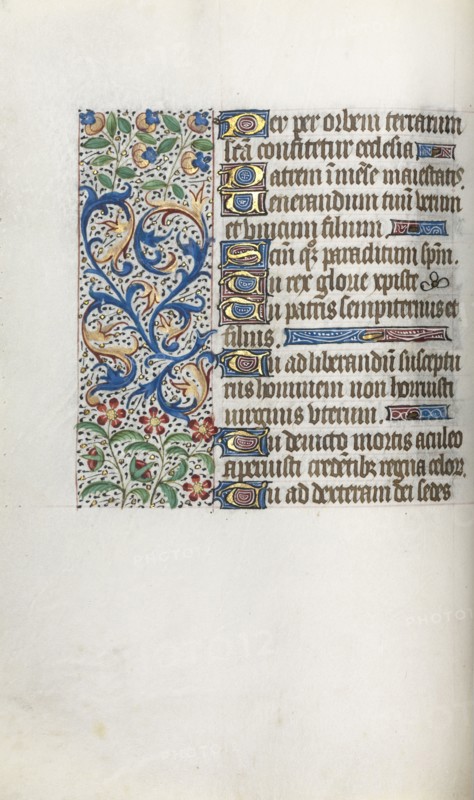 Per per orbem terrarum
scā confitetur ecclesia
Patrem īmēse maiestatis
Uenerandum tuū verum
et vnicum filium
Sctm̄ q₃ paraclitum spm̄.
Tu rex glorie xpiste
Tu patris sempiternus es
filius.
Tu ad liberandū susceptu
rus hominem non horruisti
uirginis vterum.
Tu deuicto mortis aculeo
aperuisti credētib₃ regna celor₄.
Tu ad dexteram dei sedes
PHOTO12